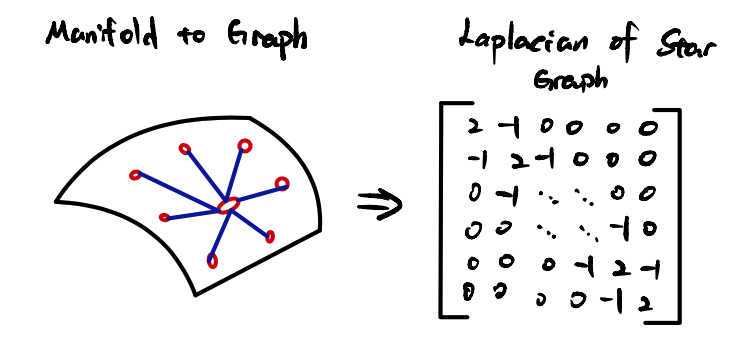 Manifold to Graph
Laplacian of Star
Graph
2 -1 0 0 0 0
-1 2 -1 0 0 0
0 -1 ⋱ ⋱ 0 0
0 0 ⋱ ⋱ -1 0
0 0 0 -1 2 -1
0 0 0 0 -1 2